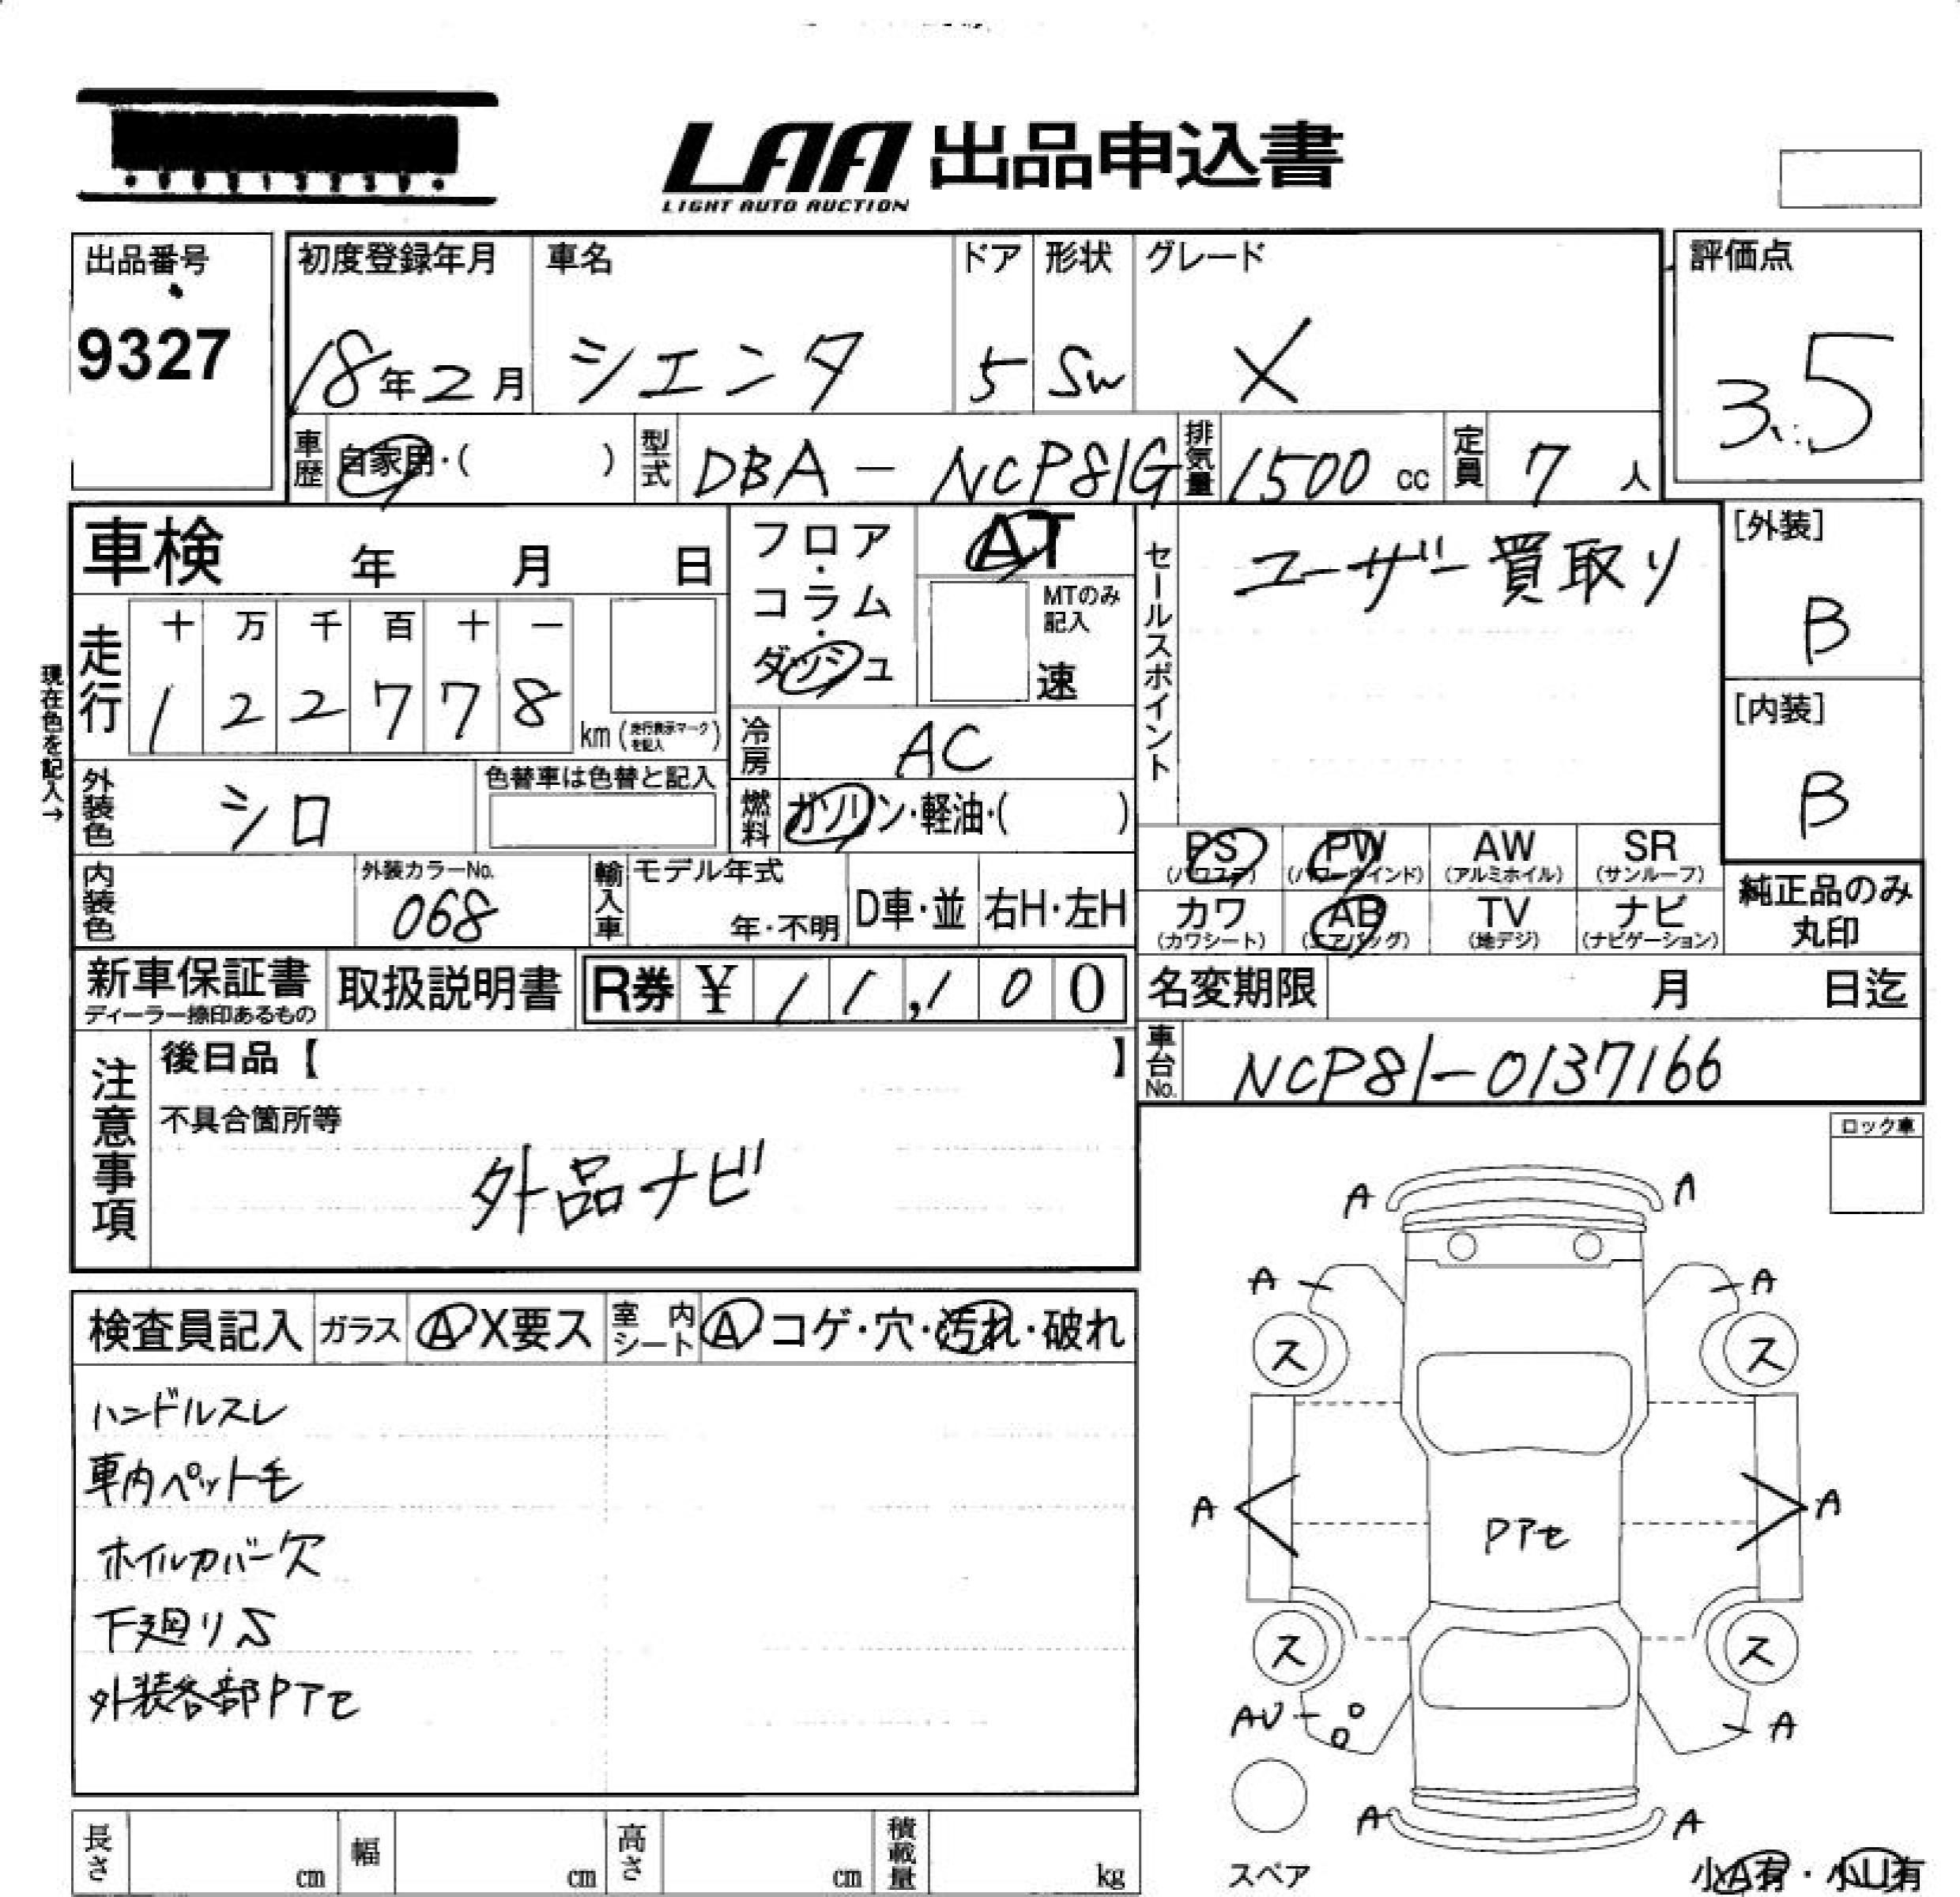 LAA 出品申込書
LIGHT AUTO AUCTION
出品番号
9327
初度登録年月
18年2月
車名
シエンタ
ドア
5
形状
SW
グレード
X
評価点
3.5
車歴 自家用・( )
型式 DBA-NCP81G
排気量 1500 cc
定員 7 人
車検 年 月 日
フロア・コラム・ダッシュ
AT
MTのみ記入
速
セールスポイント
ユーザー買取り
[外装]
B
[内装]
B
現在色を記入→
走行
十 万 千 百 十 一
1 2 2 7 7 8
km (走行表示マークを記入)
冷房 AC
燃料 ガソリン・軽油・( )
外装色 シロ
色替車は色替と記入
内装色
外装カラーNo.
068
輸入車
モデル年式
年・不明
D車・並
右H・左H
PS (パワステ)
PW (パワーウインド)
AW (アルミホイル)
SR (サンルーフ)
カワ (カワシート)
AB (エアバッグ)
TV (地デジ)
ナビ (ナビゲーション)
純正品のみ
丸印
新車保証書
ディーラー捺印あるもの
取扱説明書
R券 ¥ 11,100
名変期限 月 日迄
車台No. NCP81-0137166
注意事項
後日品【 】
不具合箇所等
外品ナビ
ロック車
検査員記入
ガラス A・X要ス
室内シート A コゲ・穴・汚れ・破れ
ハンドルスレ
車内ペット毛
ホイルカバー欠
下廻りS
外装各部PTセ
A A
A A
ス ス
A A
PTセ
ス ス
AU A
A A
スペア
小A有・小U有
長さ cm
幅 cm
高さ cm
積載量 kg